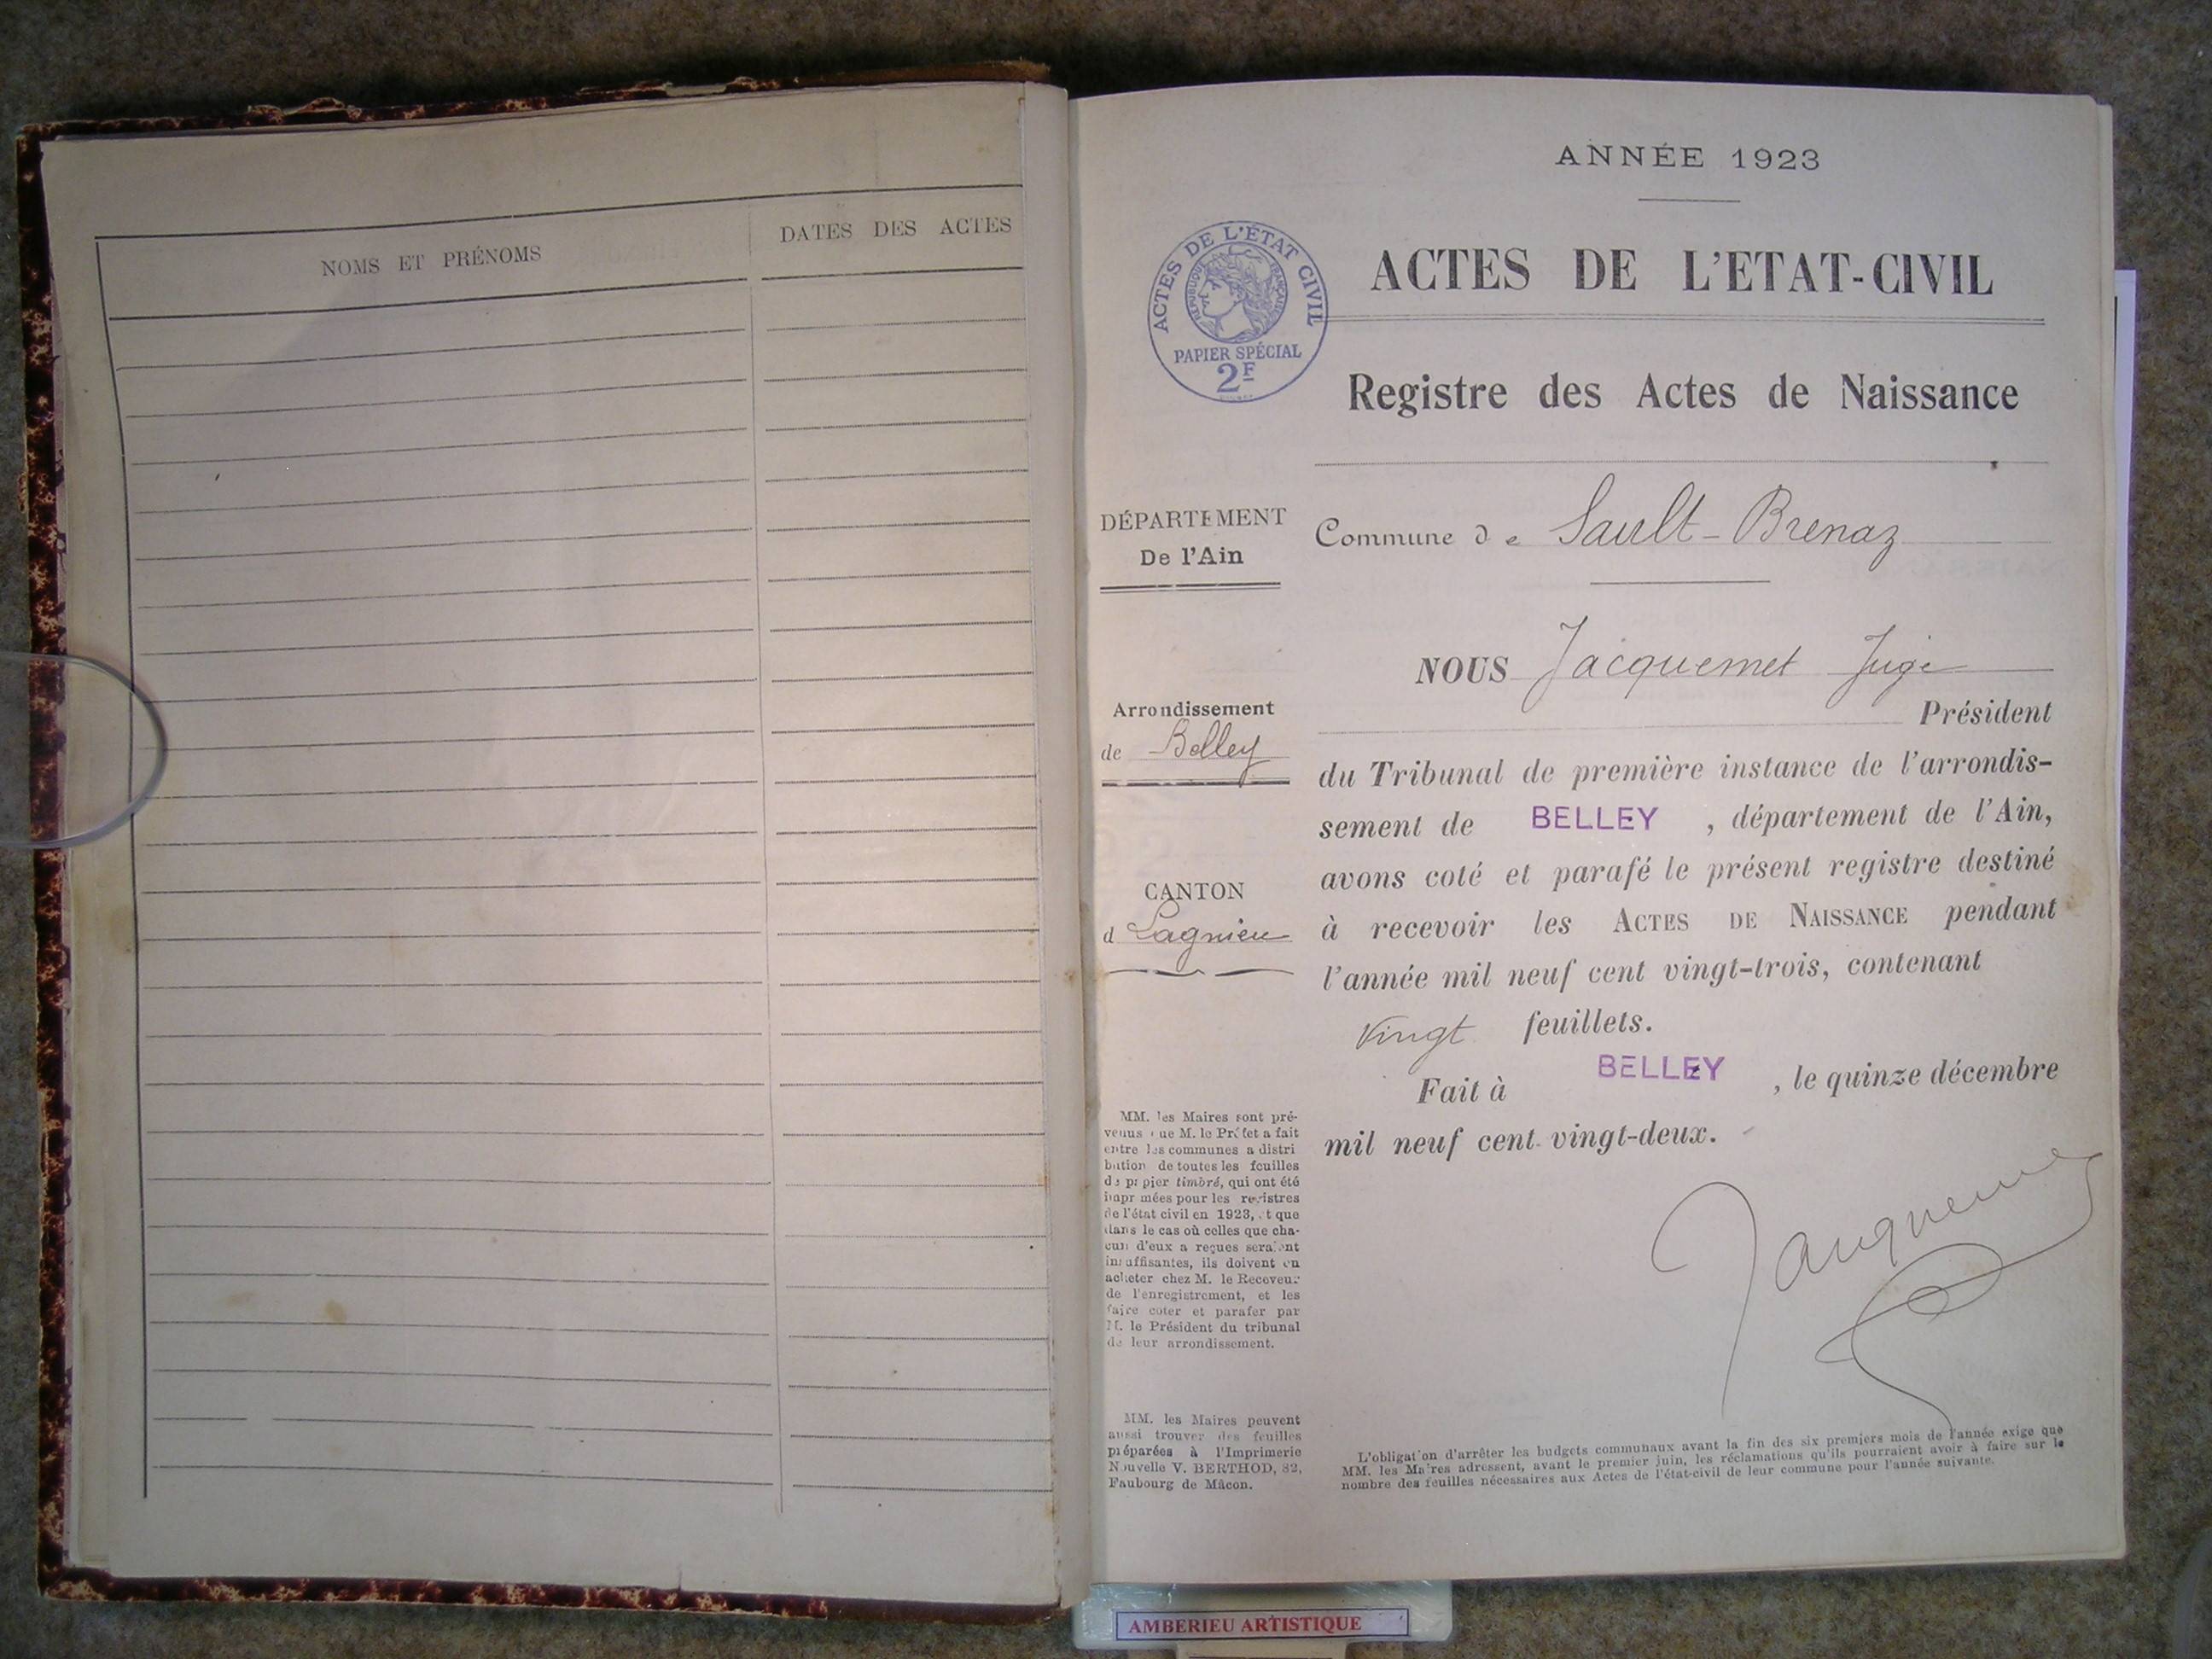 NOMS ET PRÉNOMS
DATES DES ACTES
ANNÉE 1923
ACTES DE L'ÉTAT CIVIL
RÉPUBLIQUE FRANÇAISE
PAPIER SPÉCIAL
2F
ACTES DE L'ETAT-CIVIL
Registre des Actes de Naissance
DÉPARTEMENT
De l'Ain
Commune de Sault-Brenaz
NOUS Jacquemet Juge
Président
Arrondissement
de Belley
du Tribunal de première instance de l'arrondis-
sement de BELLEY , département de l'Ain,
avons coté et parafé le présent registre destiné
CANTON
d Lagnieu
à recevoir les ACTES DE NAISSANCE pendant
l'année mil neuf cent vingt-trois, contenant
Vingt feuillets.
Fait à BELLEY , le quinze décembre
mil neuf cent vingt-deux.
Jacquemet
MM. les Maires sont pré-
venus que M. le Préfet a fait
entre les communes a distri
bution de toutes les feuilles
de papier timbré, qui ont été
imprimées pour les registres
de l'état civil en 1923, et que
dans le cas où celles que cha-
cun d'eux a reçues seraient
insuffisantes, ils doivent en
acheter chez M. le Receveur
de l'enregistrement, et les
faire coter et parafer par
M. le Président du tribunal
de leur arrondissement.
MM. les Maires peuvent
aussi trouver des feuilles
préparées à l'Imprimerie
Nouvelle V. BERTHOD, 82,
Faubourg de Mâcon.
L'obligation d'arrêter les budgets communaux avant la fin des six premiers mois de l'année exige que
MM. les Maires adressent, avant le premier juin, les réclamations qu'ils pourraient avoir à faire sur le
nombre des feuilles nécessaires aux Actes de l'état-civil de leur commune pour l'année suivante.
AMBERIEU ARTISTIQUE